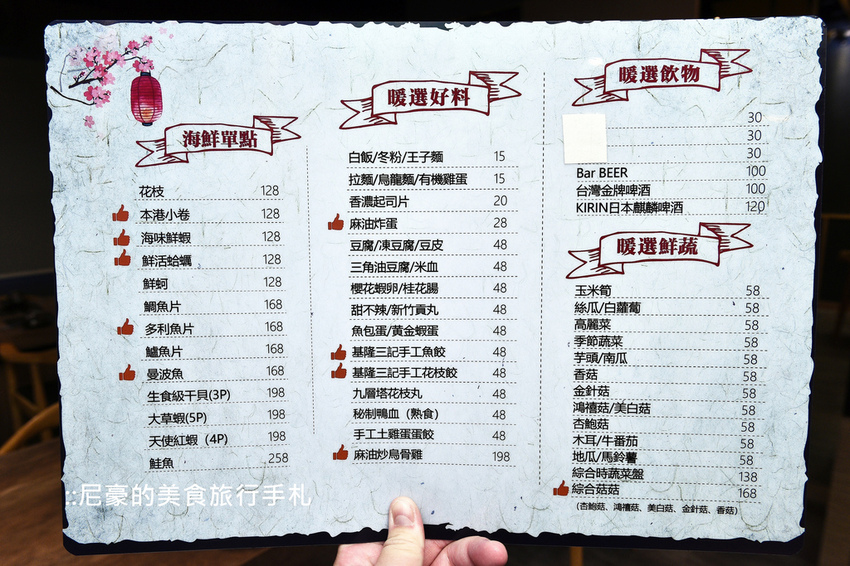 海鮮單點
花枝 128
本港小卷 128
海味鮮蝦 128
鮮活蛤蠣 128
鮮蚵 128
鯛魚片 168
多利魚片 168
鱸魚片 168
曼波魚 168
生食級干貝(3P) 198
大草蝦(5P) 198
天使紅蝦（4P) 198
鮭魚 258
暖選好料
白飯/冬粉/王子麵 15
拉麵/烏龍麵/有機雞蛋 15
香濃起司片 20
麻油炸蛋 28
豆腐/凍豆腐/豆皮 48
三角油豆腐/米血 48
櫻花蝦卵/桂花腸 48
甜不辣/新竹貢丸 48
魚包蛋/黃金蝦蛋 48
基隆三記手工魚餃 48
基隆三記手工花枝餃 48
九層塔花枝丸 48
秘制鴨血（熟食） 48
手工土雞蛋蛋餃 48
麻油炒烏骨雞 198
暖選飲物
30
30
30
Bar BEER 100
台灣金牌啤酒 100
KIRIN日本麒麟啤酒 120
暖選鮮蔬
玉米筍 58
絲瓜/白蘿蔔 58
高麗菜 58
季節蔬菜 58
芋頭/南瓜 58
香菇 58
金針菇 58
鴻禧菇/美白菇 58
杏鮑菇 58
木耳/牛番茄 58
地瓜/馬鈴薯 58
綜合時蔬菜盤 138
綜合菇菇 168
（杏鮑菇、鴻禧菇、美白菇、金針菇、香菇）
::尼豪的美食旅行手札